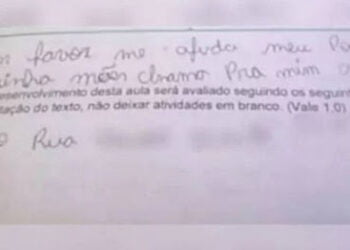 favor me ajuda meu
minha mães chama Pra mim
esenvolvimento desta aula será avaliado seguindo os seguin
tação do texto, não deixar atividades em branco. (Vale 1,0)
Rua